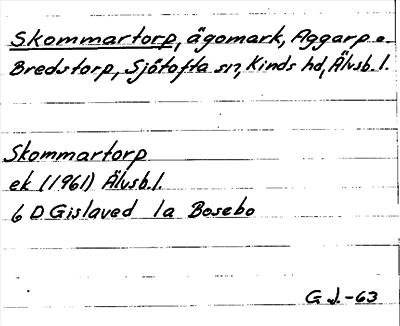 Skommartorp, ägomark, Aggarp o.
Bredstorp, Sjötofta sn, Kinds hd, Älvsb. l.
Skommartorp
ek (1961) Älvsb. l.
6 D Gislaved 1a Bosebo
G. J. -63